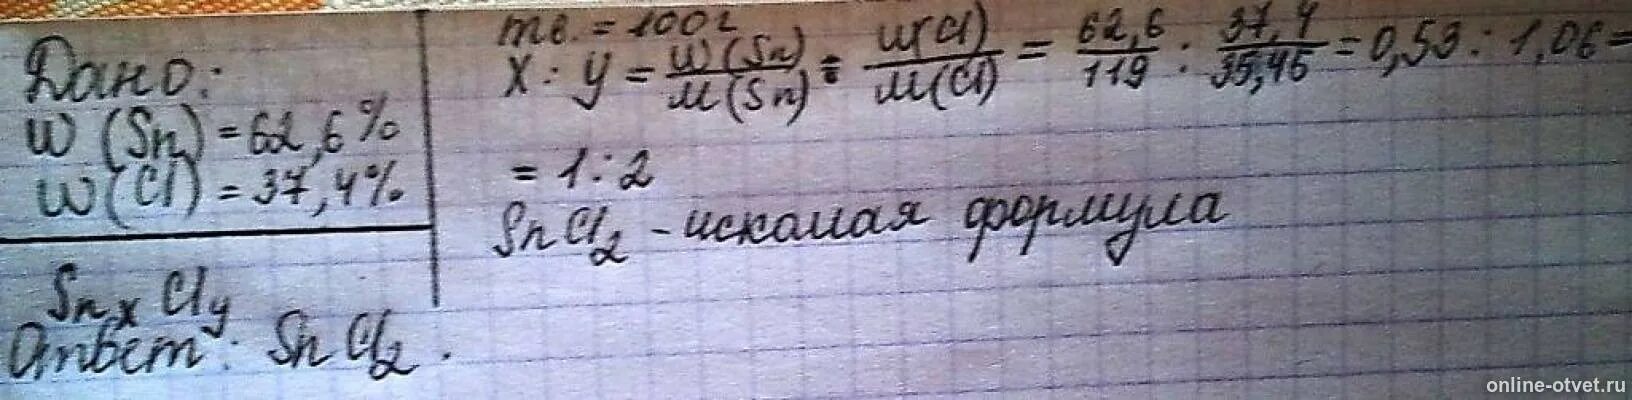 Дано:
W (Sn) = 62,6%
W (Cl) = 37,4%
Sn x Cl y
Ответ: SnCl2.
mв. = 100г
X : Y = W(Sn)/M(Sn) : W(Cl)/M(Cl) = 62,6/119 : 37,4/35,45 = 0,53 : 1,06 =
= 1:2
SnCl2 - искомая формула
online-otvet.ru